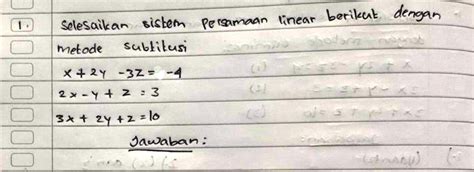 1. Selesaikan sistem persamaan linear berikut dengan
metode subtitusi
x + 2y - 3z = -4
2x - y + z = 3
3x + 2y + z = 10
Jawaban: